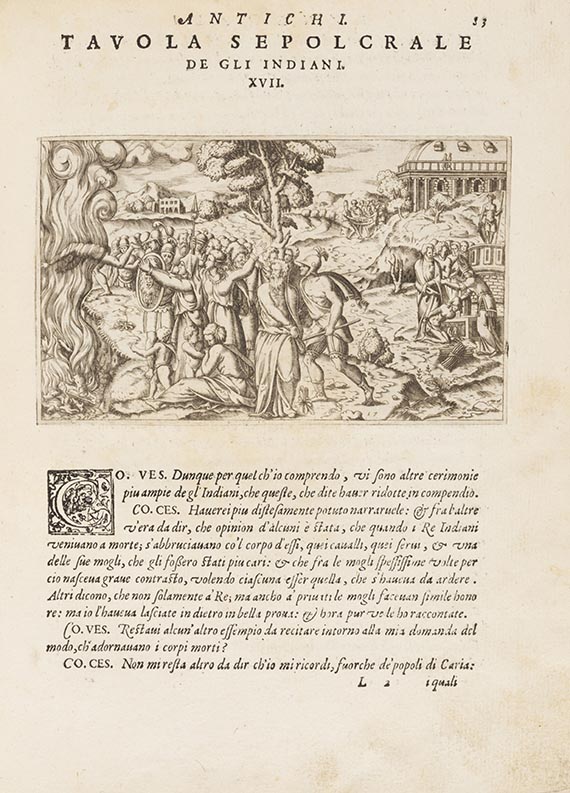 ANTICHI. 83
TAVOLA SEPOLCRALE
DE GLI INDIANI.
XVII.
17
CO. VES. Dunque per quel ch'io comprendo, vi sono altre cerimonie
piu ampie de gl'Indiani, che queste, che dite hauer ridotte in compendio.
CO. CES. Hauerei piu distesamente potuto narraruele: & fra l'altre
v'era da dir, che opinion d'alcuni è stata, che quando i Re Indiani
veniuano a morte; s'abbruciauano co'l corpo d'essi, quei caualli, quei serui, & una
delle sue mogli, che gli fossero stati piu cari: & che fra le mogli spessissime volte per
cio nasceua graue contrasto, volendo ciascuna esser quella, che s'haueua da ardere.
Altri dicono, che non solamente a' Re; ma ancho a' priuati le mogli faceuan simile hono
re: ma io l'haueua lasciate in dietro in bella proua: & hora pur ve le ho raccontate.
CO. VES. Restaui alcun'altro essempio da recitare intorno alla mia domanda del
modo, ch'adornauano i corpi morti?
CO. CES. Non mi resta altro da dir ch'io mi ricordi, fuorche de' popoli di Caria:
L 2 i quali